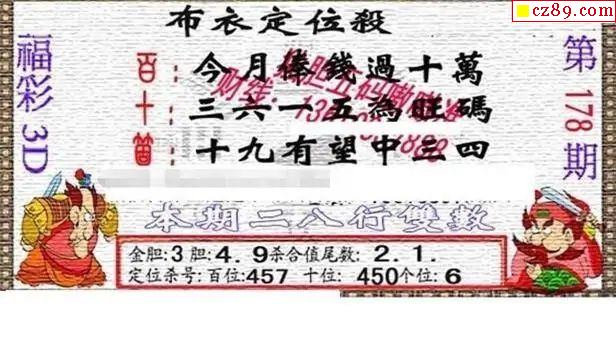 cz89.com
布衣定位殺
福彩3D
第178期
百：今月俸錢過十萬
十：三六一五為旺碼
十九有望中三四
本期二八行雙數
金胆:3胆:4.9杀合值尾数:2.1.
定位杀号:百位:457 十位:450个位:6